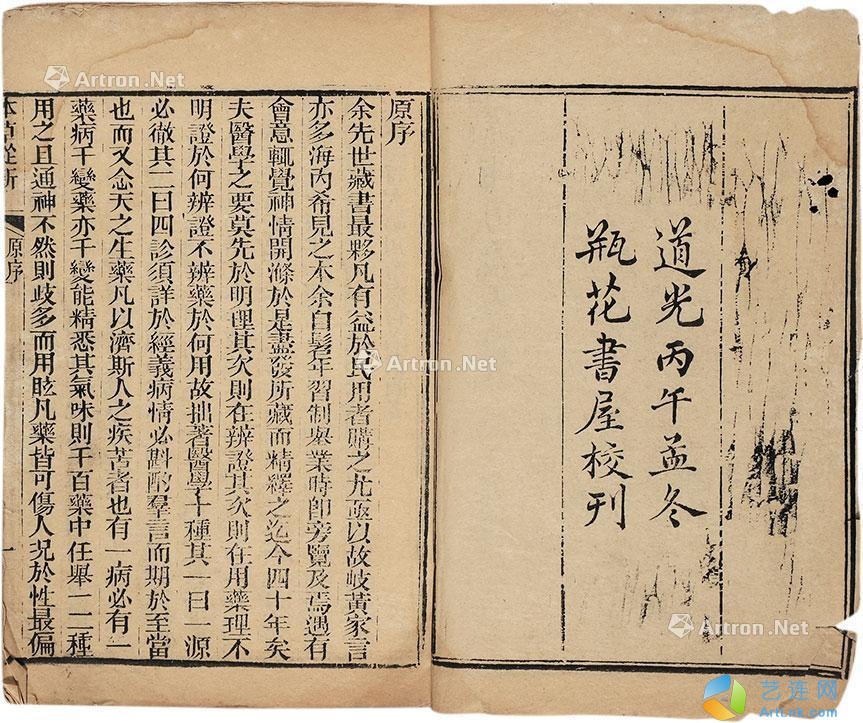 道光丙午孟冬
瓶花書屋校刊
原序
余先世藏書最夥凡有益於民用者購之尤亟以故岐黃家言
亦多海內希見之本余自髫年習制舉業時卽旁覽及焉遇有
會意輒覺神情開滌於是盡發所藏而精釋之迄今四十年矣
夫醫學之要莫先於明理其次則在辨證其次則在用藥理不
明證於何辨證不辨藥於何用故拙著醫學十種其一曰一源
必徹其二曰四診須詳於經義病情必斟酌羣言而期於至當
也而又念天之生藥凡以濟斯人之疾苦者也有一病必有一
藥病千變藥亦千變能精悉其氣味則千百藥中任舉一二種
用之且通神不然則歧多而用眩凡藥皆可傷人況於性最偏
本草從新
原序
一
Artron.Net
Artron.Net
Artron.Net
Artron.Net
艺连网
ArtLnk.com